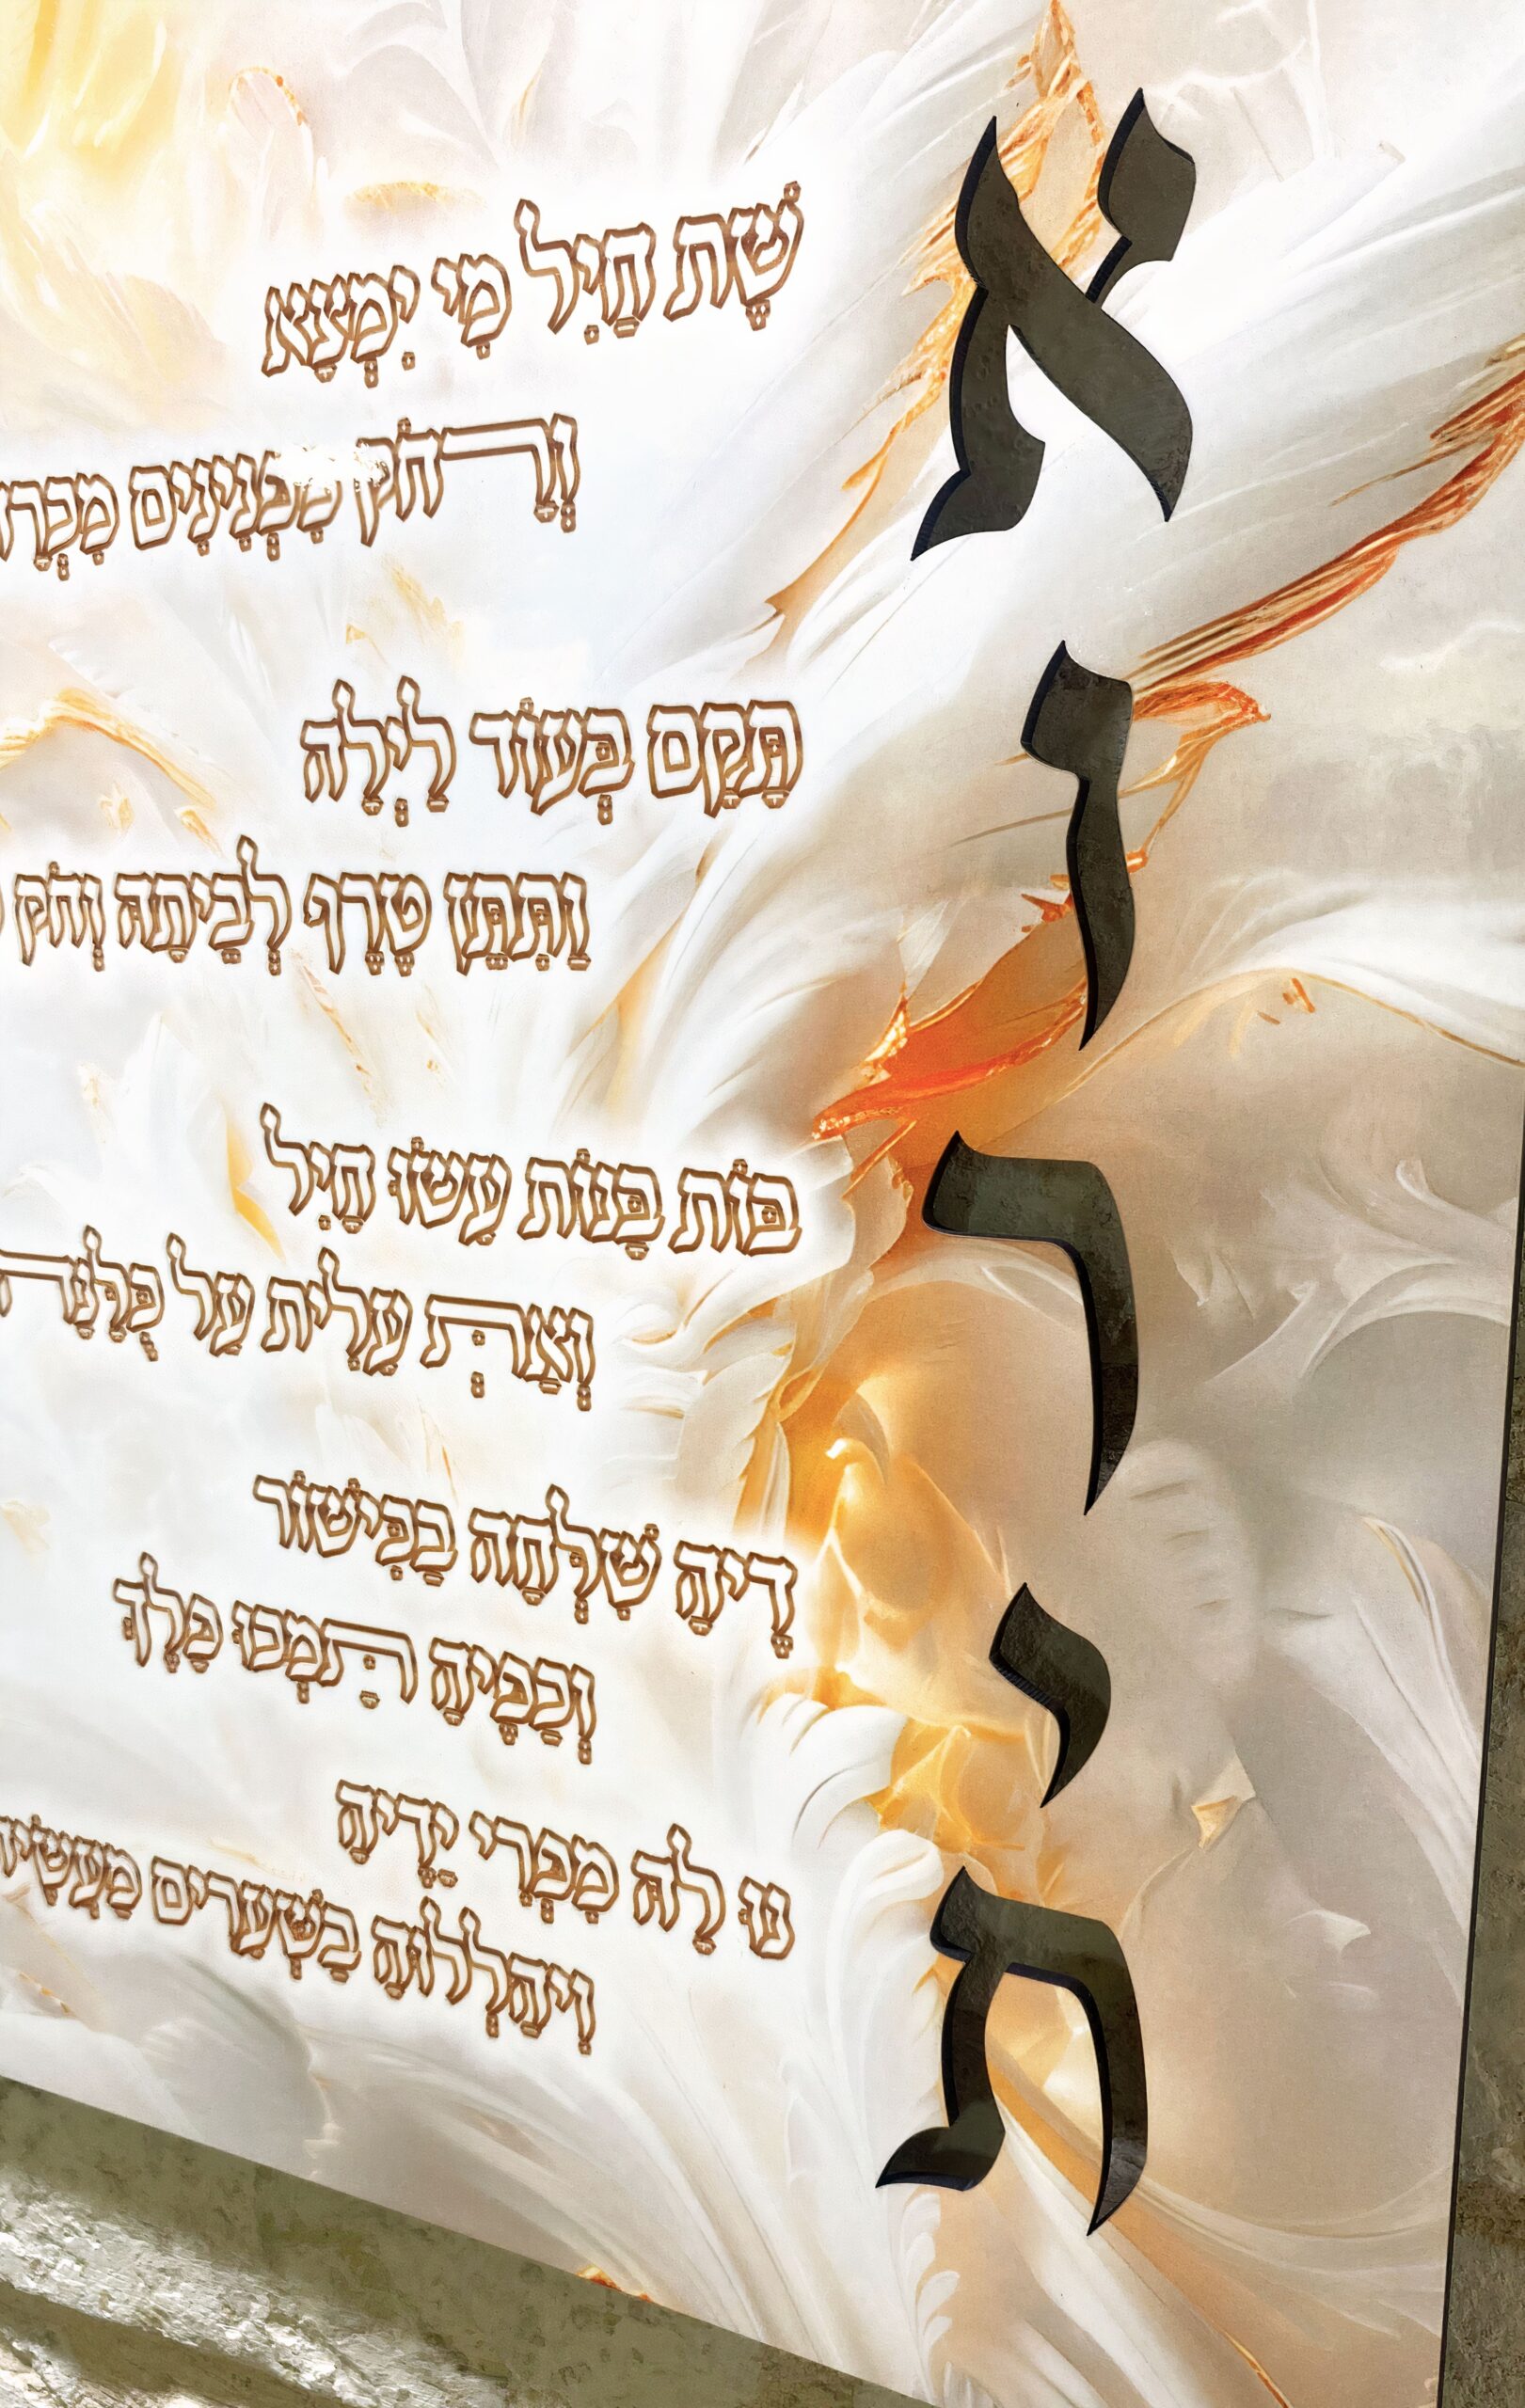 אשֶׁת חַיִל מִי יִמְצָא
וְרָחֹק מִפְּנִינִים
ותָּקָם בְּעוֹד לַיְלָה
וַתִּתֵּן טֶרֶף לְבֵיתָהּ וְחֹק
רבּוֹת בָּנוֹת עָשׂוּ חָיִל
וְאַתְּ עָלִית עַל כֻּלָּנָה
ידֶיהָ שִׁלְּחָה בַכִּישׁוֹר
וְכַפֶּיהָ תָּמְכוּ פָלֶךְ
תנוּ לָהּ מִפְּרִי יָדֶיהָ
וִיהַלְלוּהָ בַשְּׁעָרִים